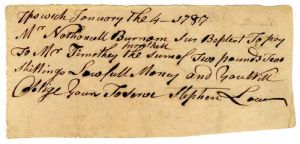 Ipswich January the 4 - 1787
Mr Nathaniell Burnam Sur Be pleset To pay
To Mr Timothy the sume of Two pounds Two
Shillings Lawfull Money and You Will
Oblige Your To Serve Stephen Low